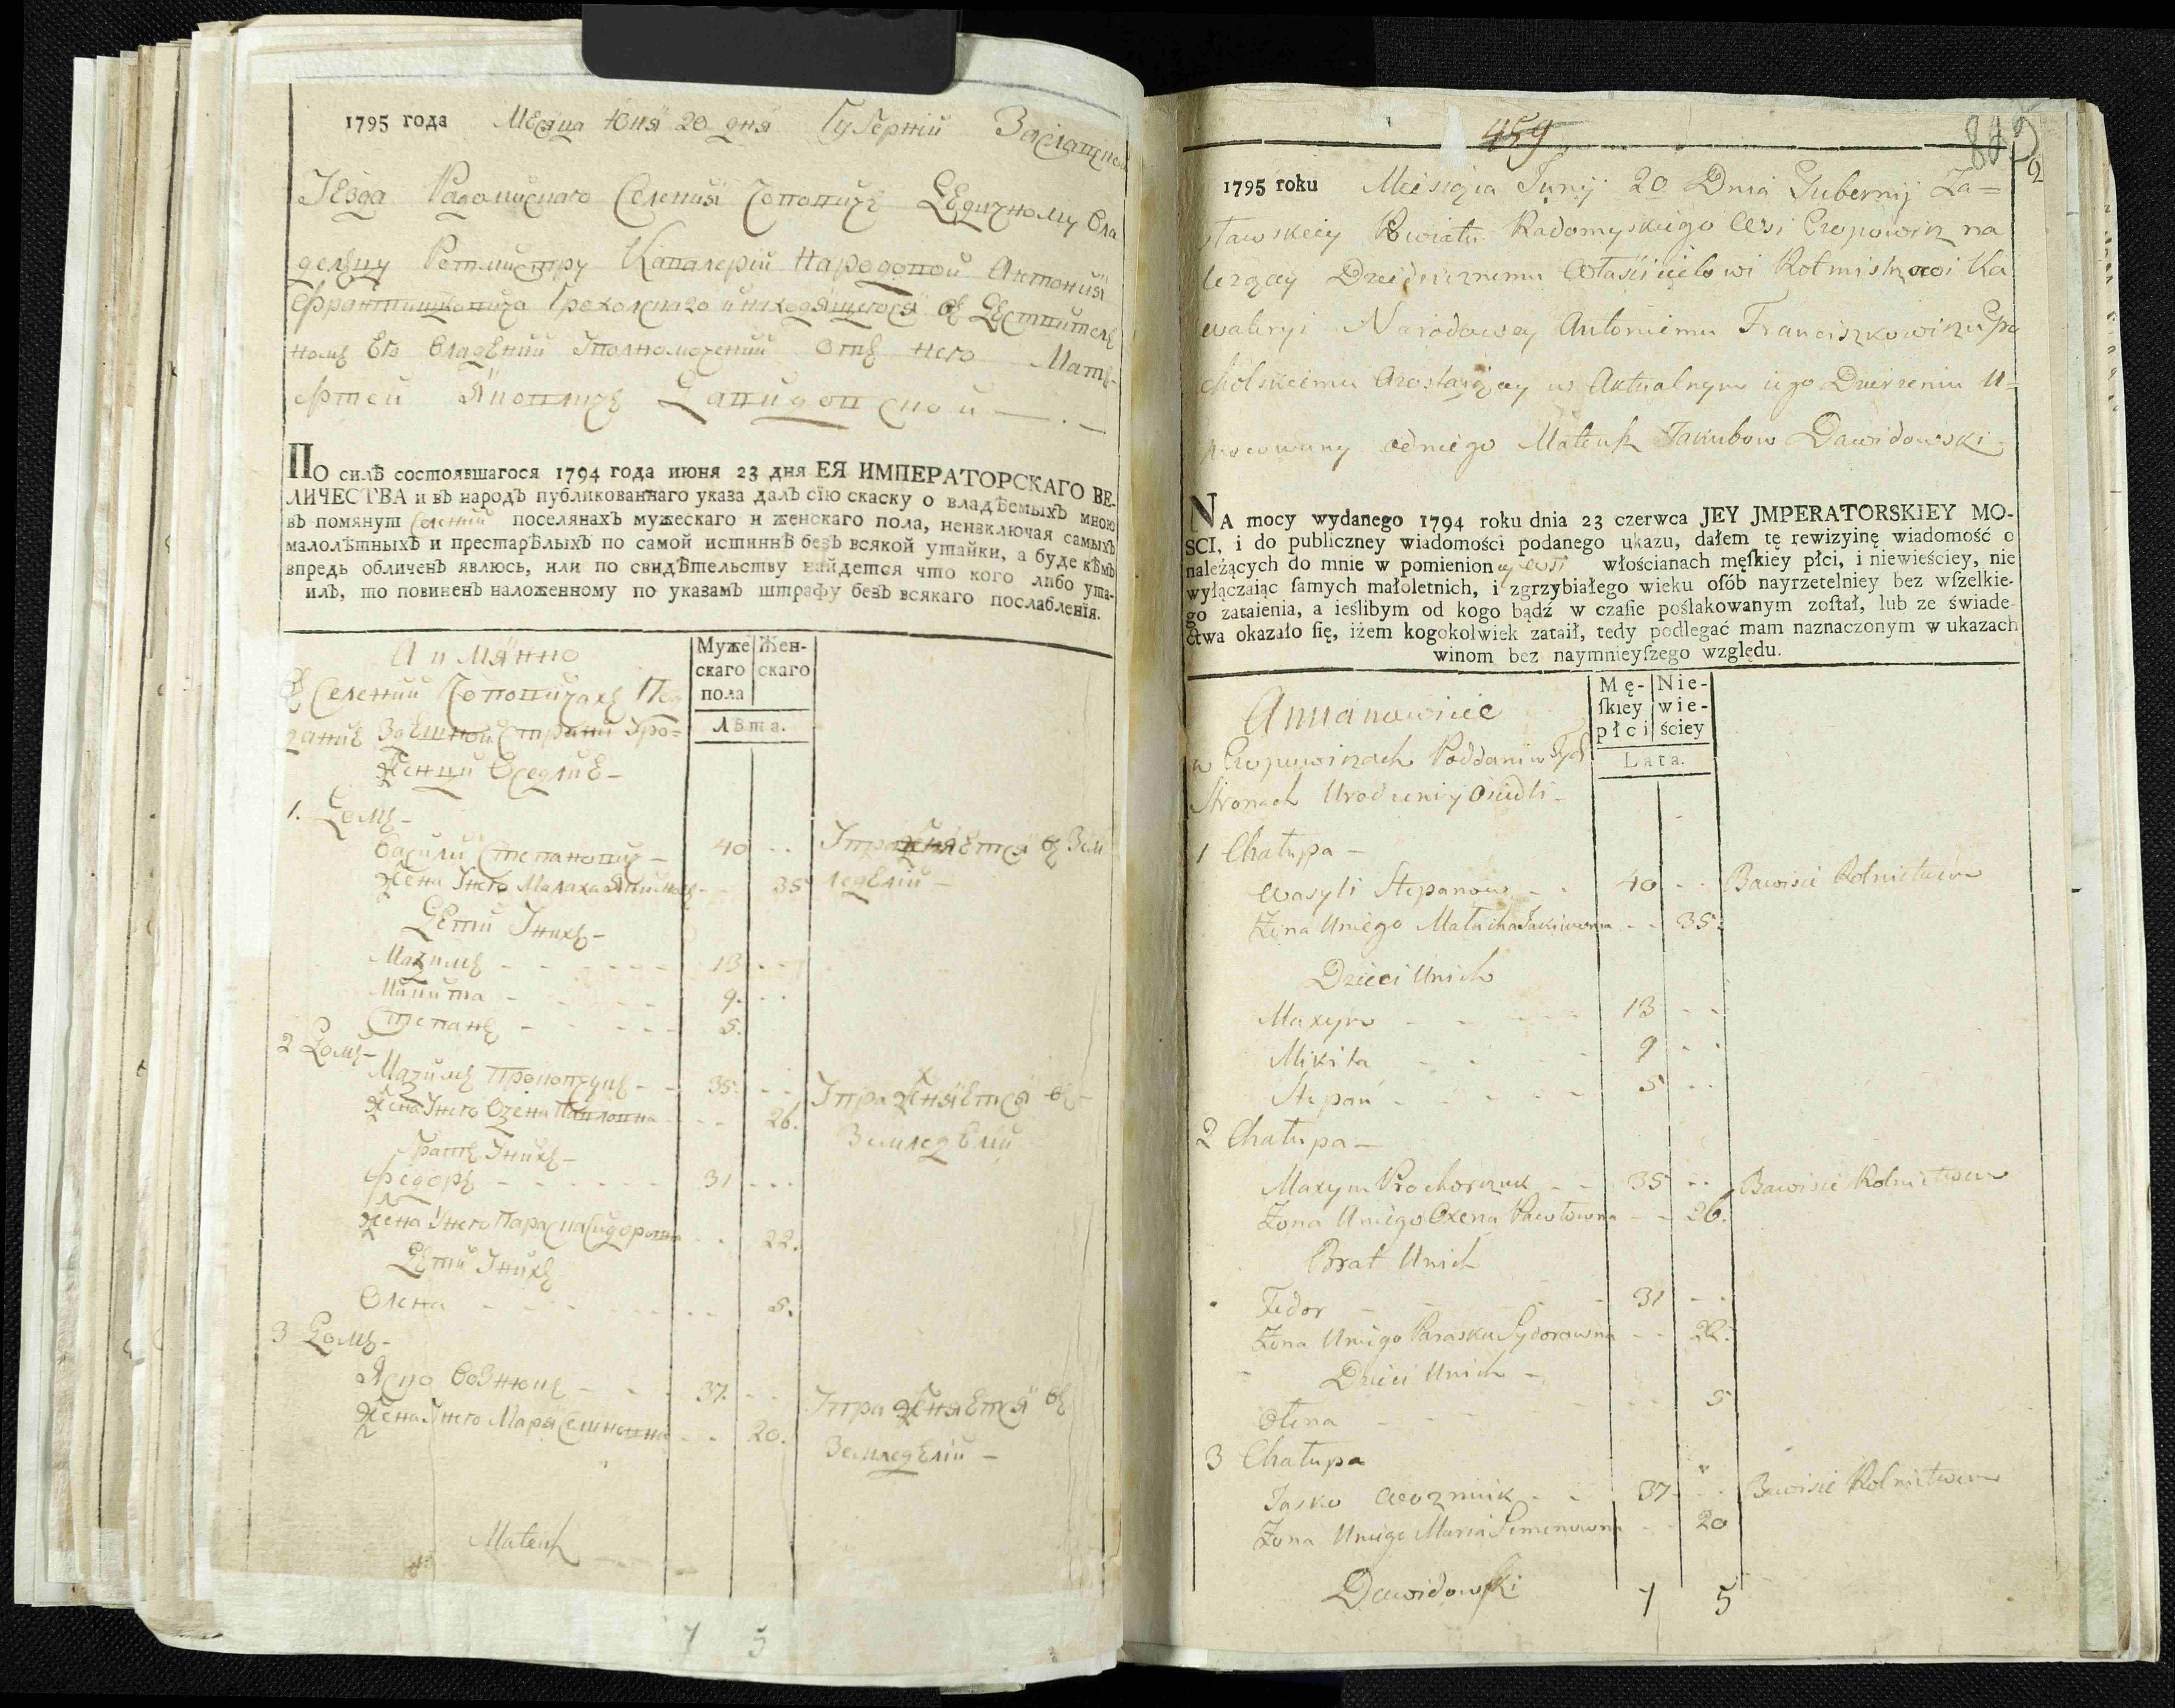 1795 года Месяца Юня 20 дня Губернии Заславской
Уезда Радомисскаго Селения Чоповичъ Дедичному Вла
делцу Ротмистру Кавалерии Народовой Антония
Францишковича Грохолскаго и находящегося въ Действител
номъ Его Владении Уполномочений отъ него Мате-
фтей Якововичъ Давидовской
По силѣ состоявшагося 1794 года июня 23 дня ЕЯ ИМПЕРАТОРСКАГО ВЕ-
ЛИЧЕСТВА и въ народъ публикованнаго указа далъ сїю скаску о владѣемыхъ мною
въ помянут Селений поселянахъ мужескаго и женскаго пола, неизключая самыхъ
малолѣтныхъ и престарѣлыхъ по самой истиннѣ безъ всякой утайки, а буде кѣмъ
впредь обличенъ явлюсь, или по свидѣтельству найдется что кого либо ута-
илъ, то повиненъ наложенному по указамъ штрафу безъ всякаго послабленїя.
А имянно
Муже Жен-
скаго скаго
пола
Лѣта.
в Селений Чоповичахъ Под
дание Здешной Страни Уро-
женци Оседлие -
1. Домъ -
Василий Степановичъ - 40 - - Упражняется в Зем
Жена Унего Малаха Якимовна - - 35 леделий -
Дети Унихъ -
Махимъ - - - - 13 - -
Микита - - - - 9. - -
Степанъ - - - - 5.
2 Домъ -
Махимъ Прокопчукъ - - 35. - - Упражняется въ -
Жена Унего Оxена Павловна - - 26. Земледелий
Братъ Унихъ -
Федоръ - - - - 31 - - -
Жена Унего Параска Сидоровна - - 22.
Дети Унихъ
Олена - - - - 5.
3 Домъ -
Яско Вознюкъ - - - 37. - - Упражняется въ
Жена Унего Мария Семновна - - 20. Земледелий -
Mateusz
7 5
459
1795 roku Miesiąca Junij 20 Dnia Gubernij Za=
sławskiey Powiatu Radomyskiego Wsi Czopowicz na
leżącey Dziedzicznemu Właścicielowi Rotmistrzowi Ka
waleryi Narodowey Antoniemu Franciszkowiczu Gro
cholskiemu Zostaiącey w Aktualnym iego Dzierżeniu U=
mocowany od niego Mateusz Jakubow Dawidowski -
NA mocy wydanego 1794 roku dnia 23 czerwca JEY JMPERATORSKIEY MO-
SCI, i do publiczney wiadomości podanego ukazu, dałem tę rewizyinę wiadomość o
należących do mnie w pomienion ey wsi włościanach męſkiey płci, i niewieściey, nie
wyłączaiąc ſamych małoletnich, i zgrzybiałego wieku oſób nayrzetelniey bez wſzelkie-
go zataienia, a ieślibym od kogo bądź w czaſie poślakowanym zoſtał, lub ze świade-
ctwa okazało ſię, iżem kogokolwiek zataił, tedy podlegać mam naznaczonym w ukazach
winom bez naymnieyſzego względu.
A mianowicie
Mę- Nie-
ſkiey wie-
płci ściey
Lata.
w Czopowiczach Poddani w Tych
Stronach Urodzeni y Osiedli -
1 Chałupa -
Wasyli Stepanow - - 40 - - Bawi sie Rolnictwem
Żona Uniego Małacha Jakimowna - - 35.
Dzieci Unich
Maxym - - - - 13 - -
Mikita - - - 9 - -
Stepan - - - - 5 - -
2 Chałupa -
Maxym Prokopczuk - - 35 - - Bawi sie Rolnictwem
Żona Uniego Oxena Pawłowna - - 26.
Brat Unich
Fedor - - - - 31 - -
Żona Uniego Paraska Sydorowna - - 22.
Dzieci Unich -
Ołena - - - - 5
3 Chałupa
Jasko Wozniuk - - 37 - - Bawi sie Rolnictwem
Żona Uniego Maria Semenowna - - 20
Dawidowſki
7 5